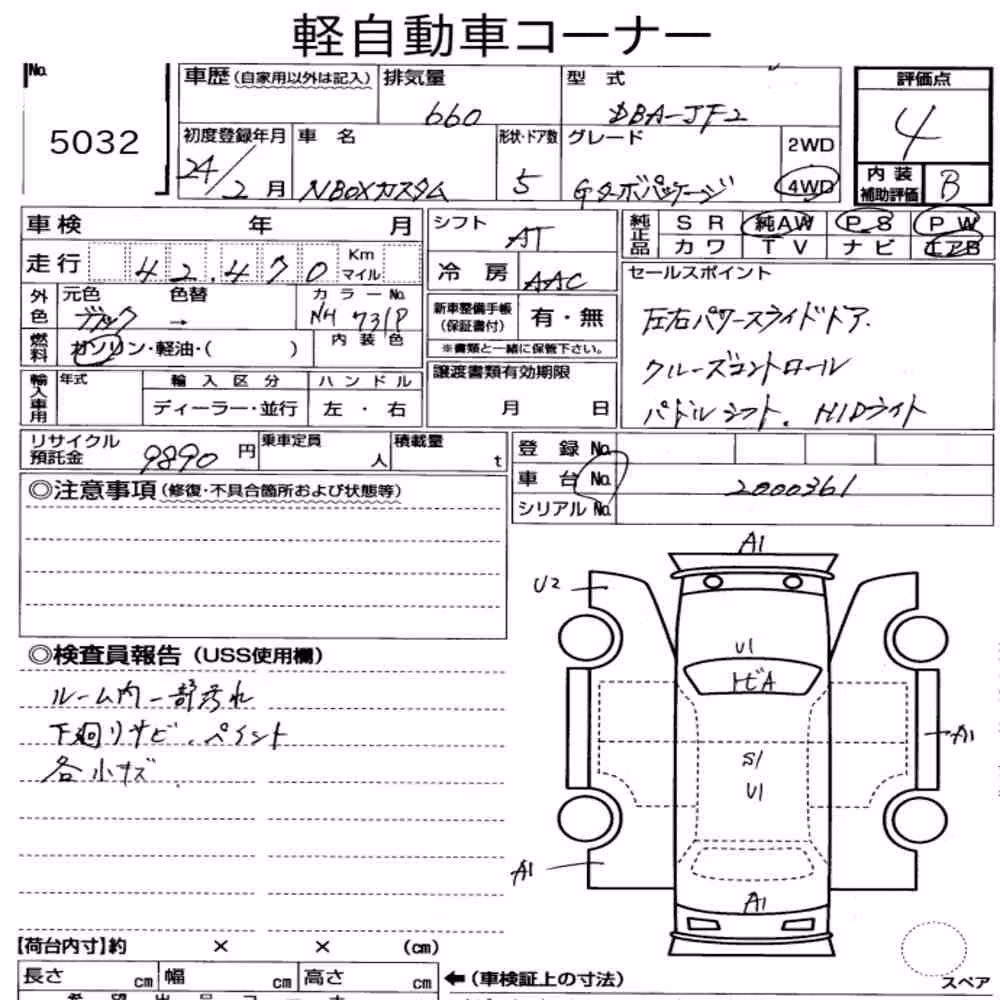 軽自動車コーナー
No. 5032
車歴(自家用以外は記入) 排気量 660 型 式 DBA-JF2
評価点 4
初度登録年月 24/2月 車 名 NBOXカスタム 形状・ドア数 5 グレード Gターボパッケージ 2WD 4WD
内装補助評価 B
車検 年 月
シフト AT
純正品 SR 純AW P.S PW
カワ TV ナビ エアB
走行 42,470 Km マイル
冷房 AAC
セールスポイント
外色 元色 ブラック 色替 → カラーNo. NH 731P
新車整備手帳(保証書付) 有・無
※書類と一緒に保管下さい。
左右パワースライドドア.
燃料 ガソリン・軽油・( ) 内装色
クルーズコントロール
輸入車用 年式 輸入区分 ハンドル
譲渡書類有効期限
ディーラー・並行 左・右
月 日
パドルシフト. HIDライト
リサイクル預託金 9890 円 乗車定員 人 積載量 t
登録No.
車台No. 2000361
シリアルNo.
◎注意事項(修復・不具合箇所および状態等)
A1
U2
◎検査員報告(USS使用欄)
U1
ルーム内一部汚れ
トビA
下廻りサビ.ペイント
A1
各小キズ
S1
U1
A1
A1
【荷台内寸】約 × × (cm)
長さ cm 幅 cm 高さ cm
←(車検証上の寸法)
スペア